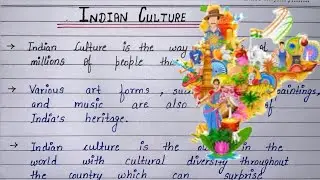 INDIAN CULTURE
→ Indian Culture is the way of
millions of people tha
→ Various art forms, su paintings,
and music are also of
India's heritage.
→ Indian culture is the o in the
world with cultural diversity throughout
the country which can surprise